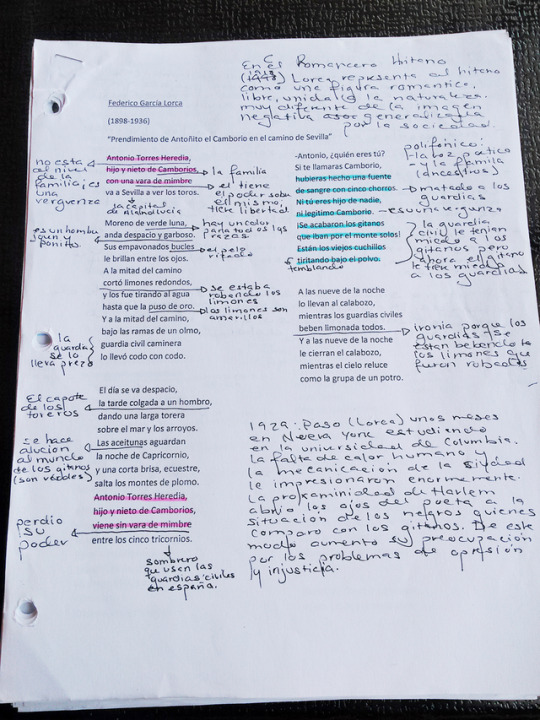 En el Romancero Gitano
(1928) Lorca representa al gitano
como una figura romantica,
libre, unida a la naturaleza.
muy diferente de la imagen
negativa
por la sociedad.
Federico García Lorca
(1898-1936)
"Prendimiento de Antoñito el Camborio en el camino de Sevilla"
Antonio Torres Heredia,
hijo y nieto de Camborios,
con una vara de mimbre
va a Sevilla a ver los toros.
Moreno de verde luna,
anda despacio y garboso.
Sus empavonados bucles
le brillan entre los ojos.
A la mitad del camino
cortó limones redondos,
y los fue tirando al agua
hasta que la puso de oro.
Y a la mitad del camino,
bajo las ramas de un olmo,
guardia civil caminera
lo llevó codo con codo.
El día se va despacio,
la tarde colgada a un hombro,
dando una larga torera
sobre el mar y los arroyos.
Las aceitunas aguardan
la noche de Capricornio,
y una corta brisa, ecuestre,
salta los montes de plomo.
Antonio Torres Heredia,
hijo y nieto de Camborios,
viene sin vara de mimbre
entre los cinco tricornios.
no esta
al nivel
de la
familia; es
una
verguenza
la familia
el tiene
el poder sobre
el mismo,
tiene libertad
la capital
de Andalucía
hay un color
para todos las
razas
es un hombre
guen y
bonito
el pelo
rizado
se estaba
robando los
limones
los limones son
amarillos
la
guardia
se lo
lleva prezo
El capote
de los
toreros
se hace
alucion
al mundo
de los gitanos
(son verdes)
perdio
su
poder
sombrero
que usen las
guardias civiles
en españa.
-Antonio, ¿quién eres tú?
Si te llamaras Camborio,
hubieras hecho una fuente
de sangre con cinco chorros.
Ni tú eres hijo de nadie,
ni legítimo Camborio.
¡Se acabaron los gitanos
que iban por el monte solos!
Están los viejos cuchillos
tiritando bajo el polvo.
A las nueve de la noche
lo llevan al calabozo,
mientras los guardias civiles
beben limonada todos.
Y a las nueve de la noche
le cierran el calabozo,
mientras el cielo reluce
como la grupa de un potro.
polifonico:
-la voz poetico
- y la familia
(ancestros)
matado a los
guardias
es una verguenza
la guardia
civil le tenian
miedo a los
gitanos pero
ahora el gitano
le tiene miedo
a los guardias
temblando
ironia porque los
guardias se
estan bebiendo
los limones que
fueron robados
1929: Paso (Lorca) unos meses
en Nueva York estudiando
en la universidad de Columbia.
la falta de calor humano y
la mecanicacion de la siudad
le impresionaron enormemente.
La proximidad de Harlem
abrio los ojos del poeta a la
situacion de los negros quienes
comparo con los gitanos. De este
modo aumento su preocupacion
por los problemas de opresion
y injusticia.